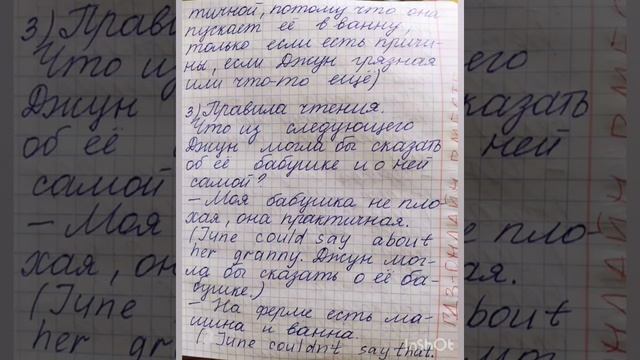 тичной, потому что она
пускает её в ванну,
только если есть причи-
ны, если Джун грязная
или что-то ещё)
3) Правила чтения.
Что из следующего
Джун могла бы сказать
об её бабушке и о ней
самой?
– Моя бабушка не пло-
хая, она практичная.
(June could say about
her granny. Джун мог-
ла бы сказать о её ба-
бушке.)
– На ферме есть ма-
шина и ванна.
(June couldn't say that.
3) Прави
Что из
Джун
об её
самой
– Моя
хая, он
(June
her gran
казать
ней
пло-
ая.
about
InShot